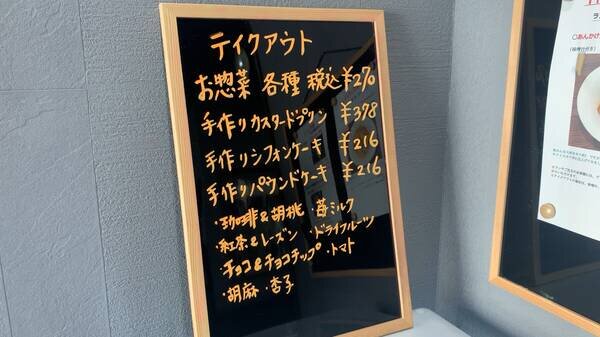 テイクアウト
お惣菜 各種 税込¥270
手作りカスタードプリン ¥378
手作りシフォンケーキ ¥216
手作りパウンドケーキ ¥216
・珈琲&胡桃 ・苺ミルク
・紅茶&レーズン ・ドライフルーツ
・チョコ&チョコチップ ・トマト
・胡麻 ・杏子
○あんかけ